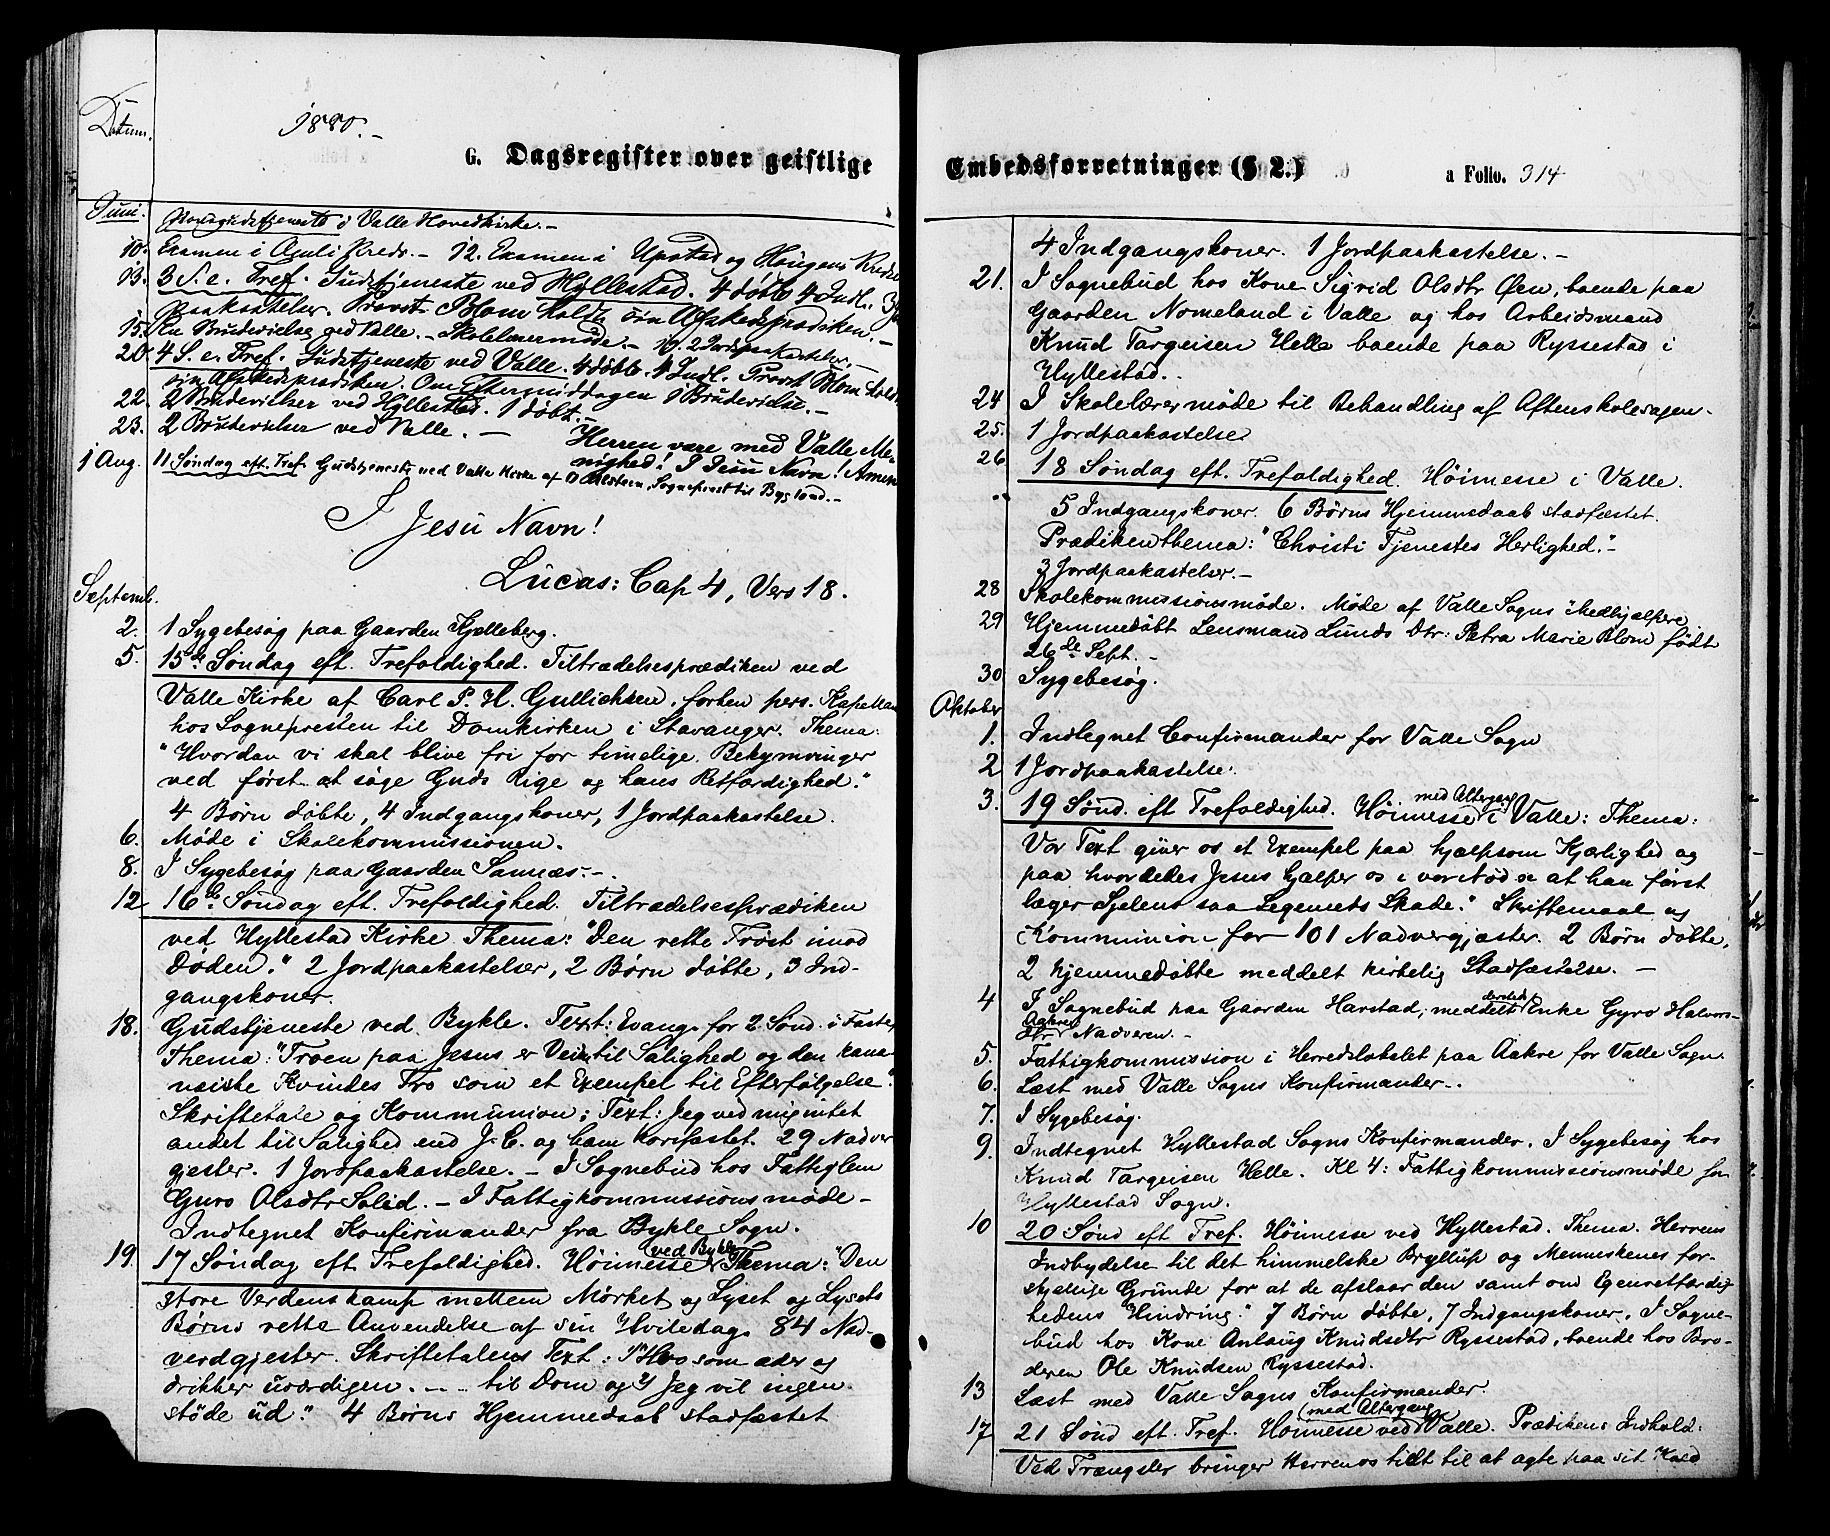 Datum.
1880.-
G. Dagsregister over geistlige
Juni.
i Valle Hovedkirke.-
10. Examen i Kreds.- 12. Examen i Upstad og Kreds
13. 3 S. e. Tref. Gudstjeneste ved Hyllestad. 4 døbte 4 Indl. 3 Jord
paakastelser. Provst Blom holdt sin Afskedsprædiken.-
15. En Brudevielse ved Valle.- Skolelærermøde.- 19. 2 Jordpaakastelser.
20. 4 S. e. Tref. Gudstjeneste ved Valle. 4 døbte. 4 Indl. Provst Blom holdt
sin Afskedsprædiken. Om Eftermiddagen 1 Brudevielse.-
22. 2 Brudevielser ved Hyllestad. 1 døbt.
23. 2 Brudevielser ved Valle.-
Herren være med Valle Me-
nighed! I Jesu Navn! Amen
1 Aug. 11 Søndag eft. Tref. Gudstjeneste ved Valle Kirke af Sogneprest til Bygland.-
I Jesu Navn!
Lucas: Cap 4, Vers 18.
Septemb.
2. 1 Sygebesøg paa Gaarden Kjelleberg.
5. 15de Søndag eft. Trefoldighed. Tiltrædelsesprædiken ved
Valle Kirke af Carl P. H. Gullichsen, forhen pers. Kapellan
hos Sognepresten til Domkirken i Stavanger. Thema:
"Hvordan vi skal blive fri for timelige Bekymringer
ved først at søge Guds Rige og hans Retfærdighed."
4 Børn døbte, 4 Indgangskoner, 1 Jordpaakastelse.
6. Møde i Skolekommissionen.
8. I Sygebesøg paa Gaarden Sannæs.-.
12 16de Søndag eft. Trefoldighed. Tiltrædelsesprædiken
ved Hyllestad Kirke Thema: "Den rette Trøst imod
Døden." 2 Jordpaakastelser, 2 Børn døbte, 3 Ind-
gangskoner.
18. Gudstjeneste ved Bykle. Text: Evang. for 2 Sønd. i Faste,
Thema: "Troen paa Jesus er Veien til Salighed og den kana-
næiske Kvindes Tro som et Exempel til Efterfølgelse".
Skriftetale og Kommunion; Text: Jeg ved mig intet
andet til Salighed end J. C. og ham korsfæstet. 29 Nadver
gjester. 1 Jordpaakastelse.- I Sognebud hos Fattiglem
Guro Olsdtr Solid.- I Fattigkommissionsmøde-
Indtegnet Konfirmander fra Bykle Sogn.
19. 17 Søndag eft Trefoldighed. Høimesse (ved Bykle) Thema: "Den
store Verdenskamp mellem Mørket og Lyset og Lysets
Børns rette Anvendelse af sin Hviledag. 84 Nad-
verdgjester. Skriftetalens Text: 1) "Hvo som æder og
drikker uværdigen.-- til Dom og 2) Jeg vil ingen
støde ud." 4 Børns Hjemmedaab stadfæstet
Embedsforretninger (§ 2.)
a Folio. 314
4 Indgangskoner. 1 Jordpaakastelse.-
21. I Sognebud hos Kone Sigrid Olsdtr Øen, boende paa
Gaarden Nomeland i Valle og hos Arbeidsmand
Knud Targeisen Helle boende paa Ryssestad i
Hyllestad.
24 I Skolelærermøde til Behandling af Aftenskolesagen-
25. 1 Jordpaakastelse
26 18 Søndag eft. Trefoldighed. Høimesse i Valle.
5 Indgangskoner. 6 Børns Hjemmedaab stadfæstet.
Prædikenthema: "Christi Tjenestes Herlighed."-
3 Jordpaakastelser.-
28 Skolekommissionsmøde. Møde af Valle Sogns Medhjælpere
29 Hjemmedøbt Lensmand Lunds Dtr: Petra Marie Blom født
26de Sept.-
30 Sygebesøg.
Oktober
1. Indtegnet Confirmander for Valle Sogn
2 1 Jordpaakastelse.
3. 19 Sønd. eft Trefoldighed. Høimesse med Altergang i Valle: Thema:
Vor Text giver os et Exempel paa hjælpsom Kjærlighed og
paa hvordedes Jesus hjælper os i vor Nød se at han først
læger Sjelens saa Legemets Skade." Skriftemaal og
Kommunion for 101 Nadvergjæster. 2 Børn døbte,
2 hjemmedøbte meddelt kirkelig Stadfæstelse.-
4 I Sognebud paa Gaarden Harstad; meddelt dersteds Enke Gyro Halvors-
dtr Aakre Nadveren.-
5. Fattigkommission i Herredslokalet paa Aakre for Valle Sogn.
6. Læst med Valle Sogns Konfirmander-.
7. I Sygebesøg.
9. Indtegnet Hyllestad Sogns Konfirmander. I Sygebesøg hos
Knud Targeisen Helle. Kl 4: Fattigkommissionsmøde for
Hyllestad Sogn.
10 20 Sønd eft Tref. Høimesse ved Hyllestad. Thema. Herrens
Indbydelse til det himmelske Bryllup og Menneskenes for-
skjellige Grunde for at de afslaar den samt om Egenretfærdig-
hedens Hindring." 7 Børn døbte, 7 Indgangskoner. I Sogne-
bud hos Kone Anlaug Knudsdtr Ryssestad, boende hos Bro-
deren Ole Knudsen Ryssestad.
13 Læst med Valle Sogns Konfirmander.
17 21 Sønd eft. Tref. Høimesse (med Altergang) ved Valle. Prædikens Indhold:
Ved Trængsler bringer Herren os tidt til at agte paa sit Kald